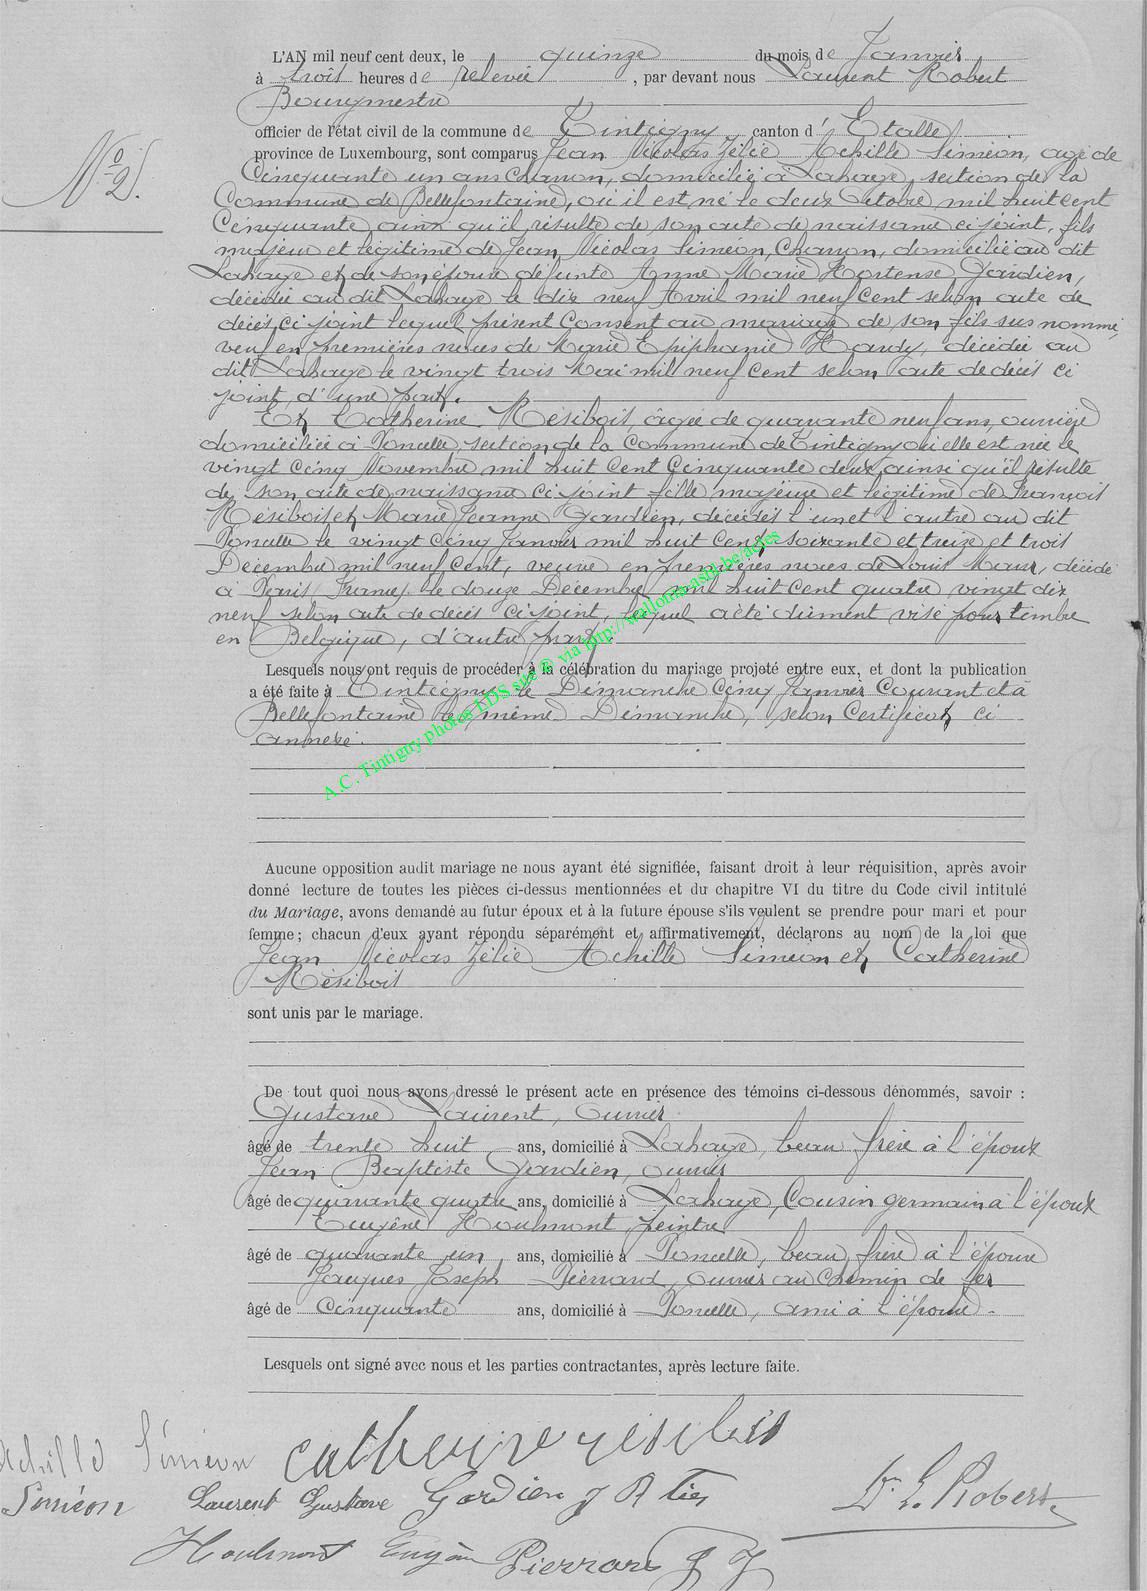 L'AN mil neuf cent deux, le quinze du mois de Janvier
à trois heures de relevée, par devant nous Laurent Robert
Bourgmestre
officier de l'état civil de la commune de Tintigny, canton d'Etalle
province de Luxembourg, sont comparus Jean Nicolas Zélie Achille Siméon, agé de
Cinquante un ans Charron, domicilié à Lahage, section de la
Commune de Bellefontaine, où il est né le deux Octobre mil huit cent
Cinquante ainsi qu'il résulte de son acte de naissance ci joint, fils
majeur et légitime de Jean Nicolas Siméon, Charron, domicilié au dit
Lahage et de son épouse défunte Anne Marie Hortense Gardien,
décédée au dit Lahage le dix neuf Avril mil neuf cent selon acte de
décès ci joint lequel présent Consent au mariage de son fils sus nommé,
veuf en premières noces de Marie Epiphanie Hardy, décédée au
dit Lahage le vingt trois Mai mil neuf cent selon acte de décès ci
joint, d'une part.
Et Catherine Résibois, âgée de quarante neuf ans, ouvrière
domiciliée à Poncelle, section de la Commune de Tintigny où elle est née le
vingt cinq Novembre mil huit cent Cinquante deux ainsi qu'il résulte
de son acte de naissance ci joint fille majeure et légitime de François
Résibois et Marie Jeanne Gardien, décédés l'un et l'autre au dit
Poncelle le vingt cinq Janvier mil huit cent soixante et treize et trois
Décembre mil neuf cent, veuve en premières noces de Louis Maur, décédé
à Paris le douze Décembre mil huit cent quatre vingt dix
neuf selon acte de décès ci joint, lequel acte dûment visé pour timbre
en Belgique, d'autre part.
Lesquels nous ont requis de procéder à la célébration du mariage projeté entre eux, et dont la publication
a été faite à Tintigny le Dimanche Cinq Janvier Courant et à
Bellefontaine le même Dimanche, selon Certificat ci
annexé.
N° 2.
A.C. Tintigny photos LDS site © via http://wallonia-asbl.be/actes
Aucune opposition audit mariage ne nous ayant été signifiée, faisant droit à leur réquisition, après avoir
donné lecture de toutes les pièces ci-dessus mentionnées et du chapitre VI du titre du Code civil intitulé
du Mariage, avons demandé au futur époux et à la future épouse s'ils veulent se prendre pour mari et pour
femme ; chacun d'eux ayant répondu séparément et affirmativement, déclarons au nom de la loi que
Jean Nicolas Zélie Achille Siméon et Catherine
Résibois
sont unis par le mariage.
De tout quoi nous avons dressé le présent acte en présence des témoins ci-dessous dénommés, savoir :
Gustave Laurent, ouvrier
âgé de trente huit ans, domicilié à Lahage, beau frère à l'époux
Jean Baptiste Gardien, ouvrier
âgé de quarante quatre ans, domicilié à Lahage, Cousin germain à l'époux
Eugène Houlmont, peintre
âgé de quarante un ans, domicilié à Poncelle, beau frère à l'épouse
Jacques Joseph Pierrard, ouvrier au chemin de fer
âgé de Cinquante ans, domicilié à Poncelle, ami à l'épouse.
Lesquels ont signé avec nous et les parties contractantes, après lecture faite.
Achille Siméon catherine résibois
Siméon Laurent Gustave Gardien J Btes Dr L. Robert
Houlmont Eugène Pierrard J J